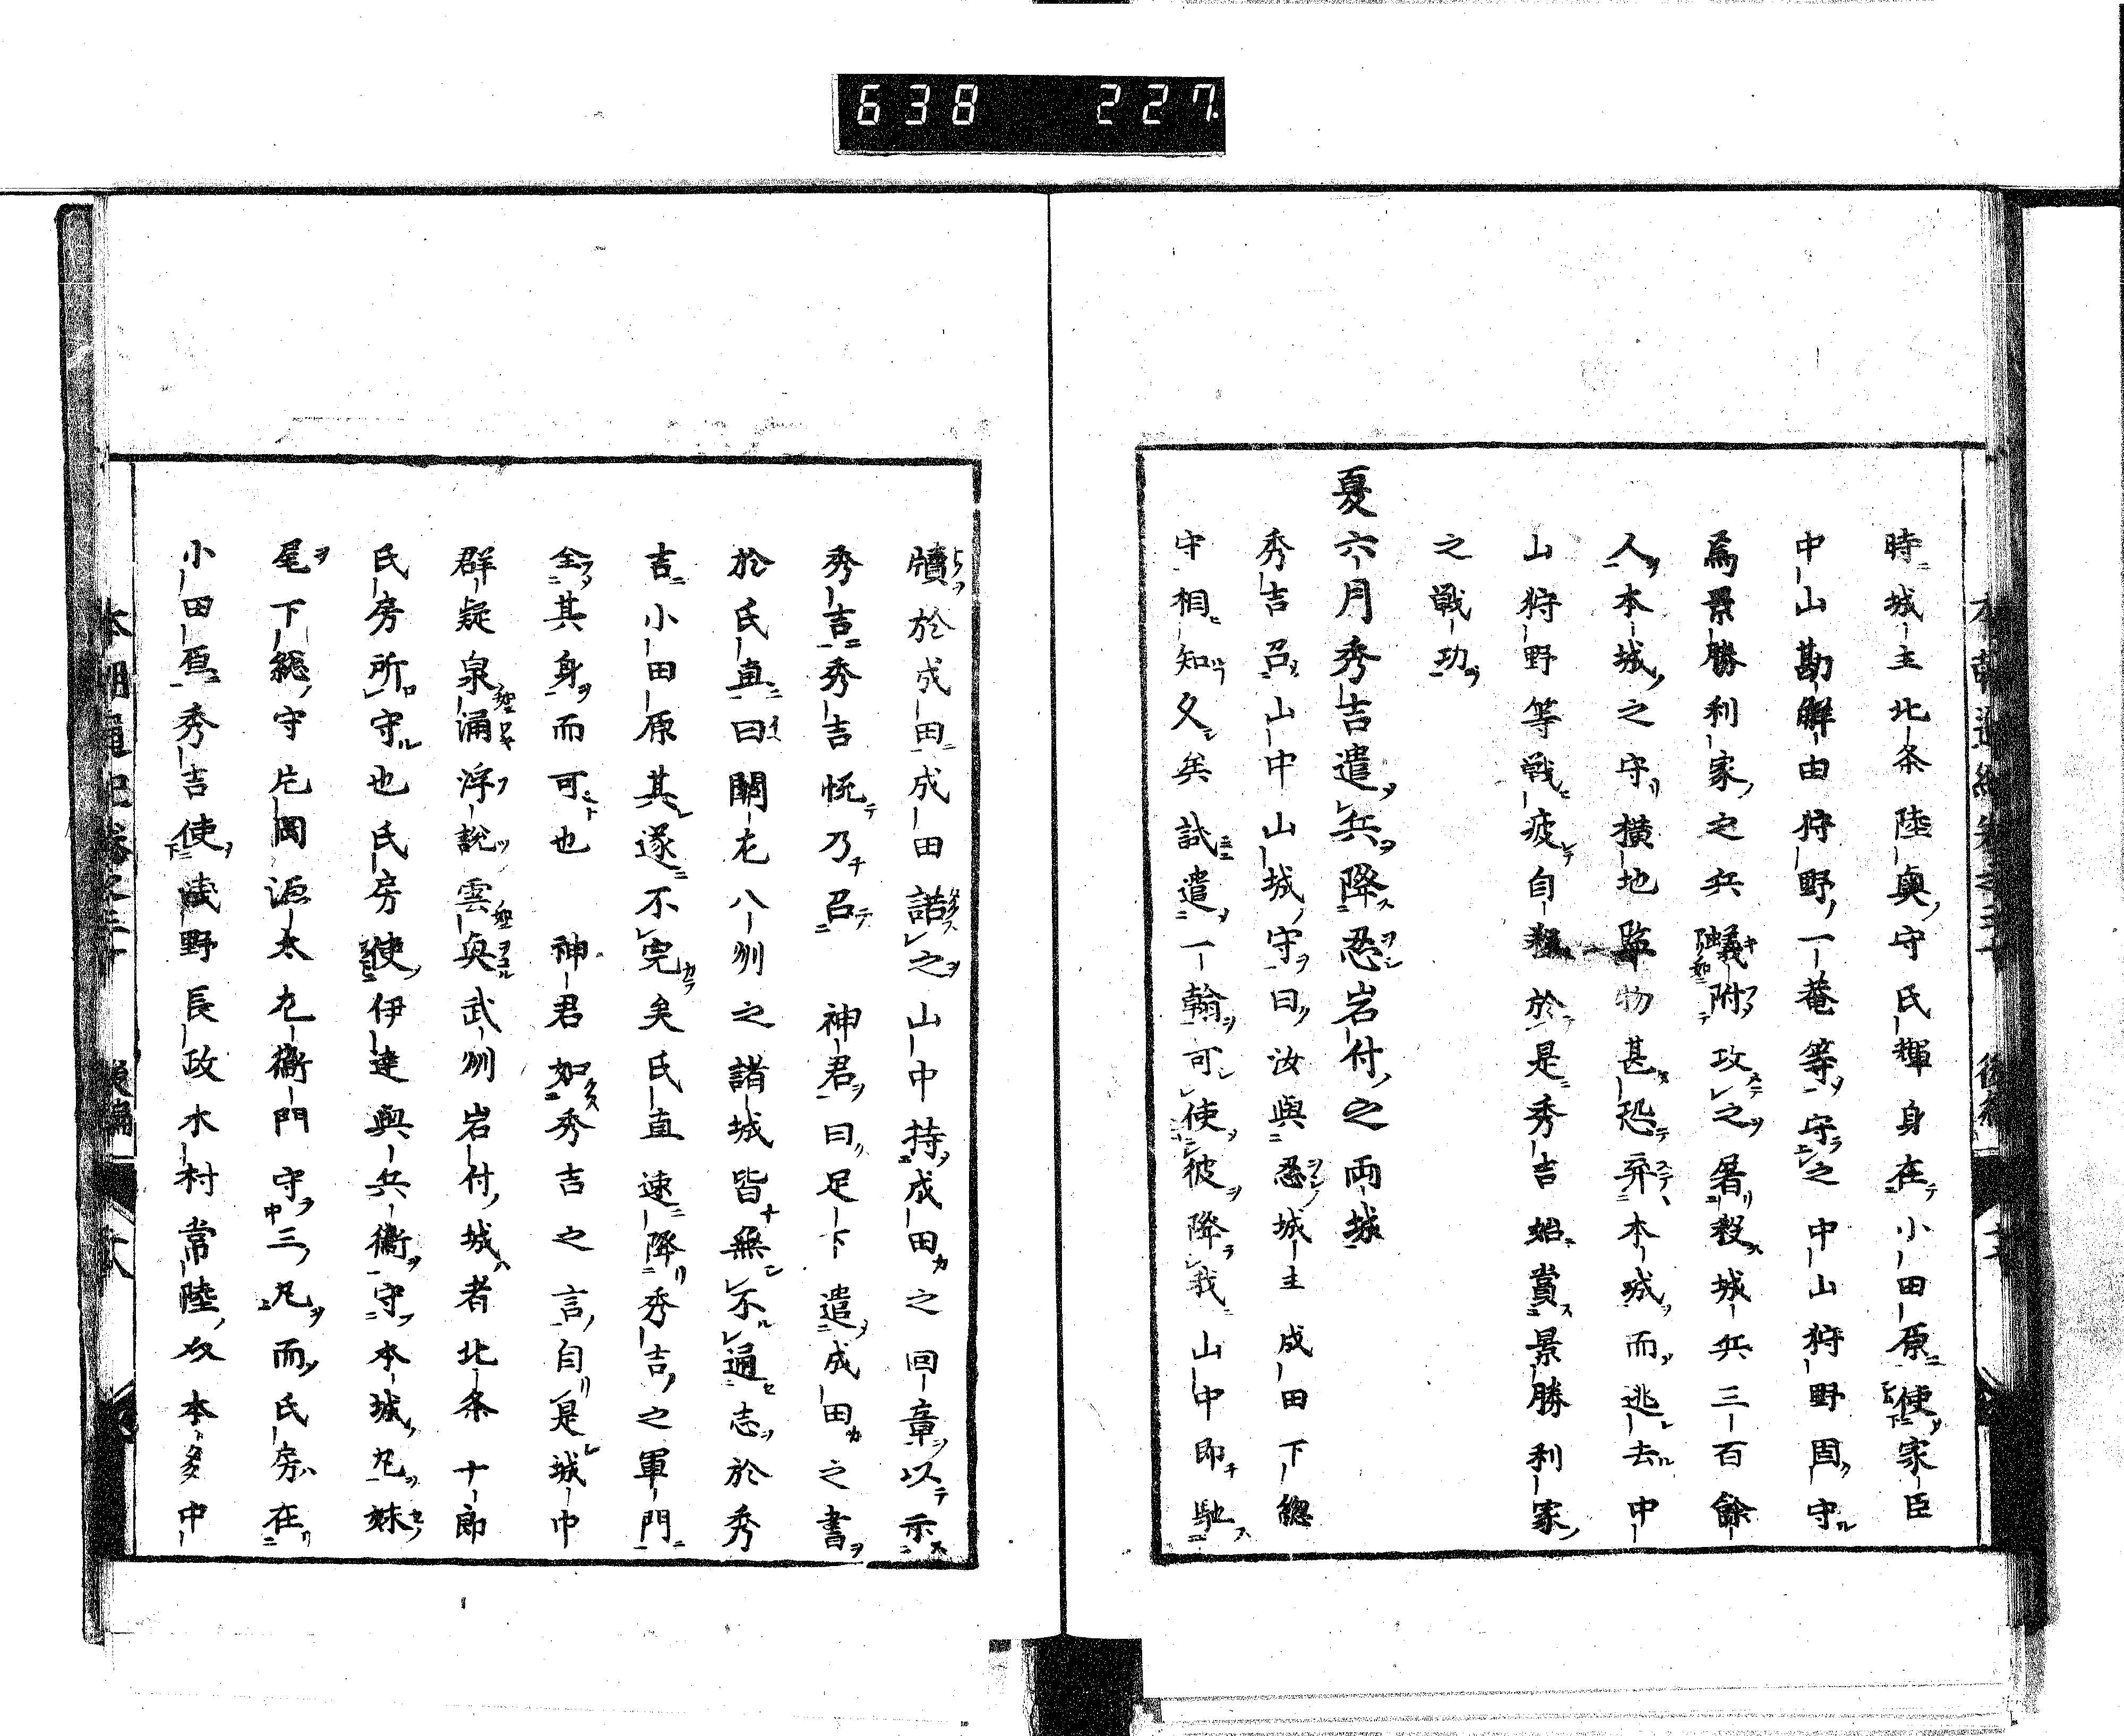 638 227
時城主北条陸奥守氏輝身在小田原使家臣
中山勘解由狩野一菴等守之中山狩野固守
爲景勝利家之兵蟻附攻之署殺城兵三百餘
人本城之守横地監物甚恐弃本城而逃去中
山狩野等戰疲自殺於是秀吉始賞景勝利家
之戰功
夏六月秀吉遣兵降忍岩付之両城
秀吉召山中山城守曰汝與忍城主成田下総
守相知久矣試遣一翰可使彼降我山中即馳
牘於成田成田諾之山中持成田之回章以示
秀吉秀吉悦乃召 神君曰足下遣成田之書
於氏直曰關左八州之諸城皆無不通志於秀
吉小田原其遂不完矣氏直速降秀吉之軍門
全其身而可也 神君如秀吉之言自是城中
群疑泉涌浮説雲興武州岩付城者北条十郎
氏房所守也氏房使伊達與兵衛守本城丸妹
尾下総守片岡源太左衛門守三丸而氏房在
小田原秀吉使浅野長政木村常陸介本多中
本朝通紀巻之三十 後編